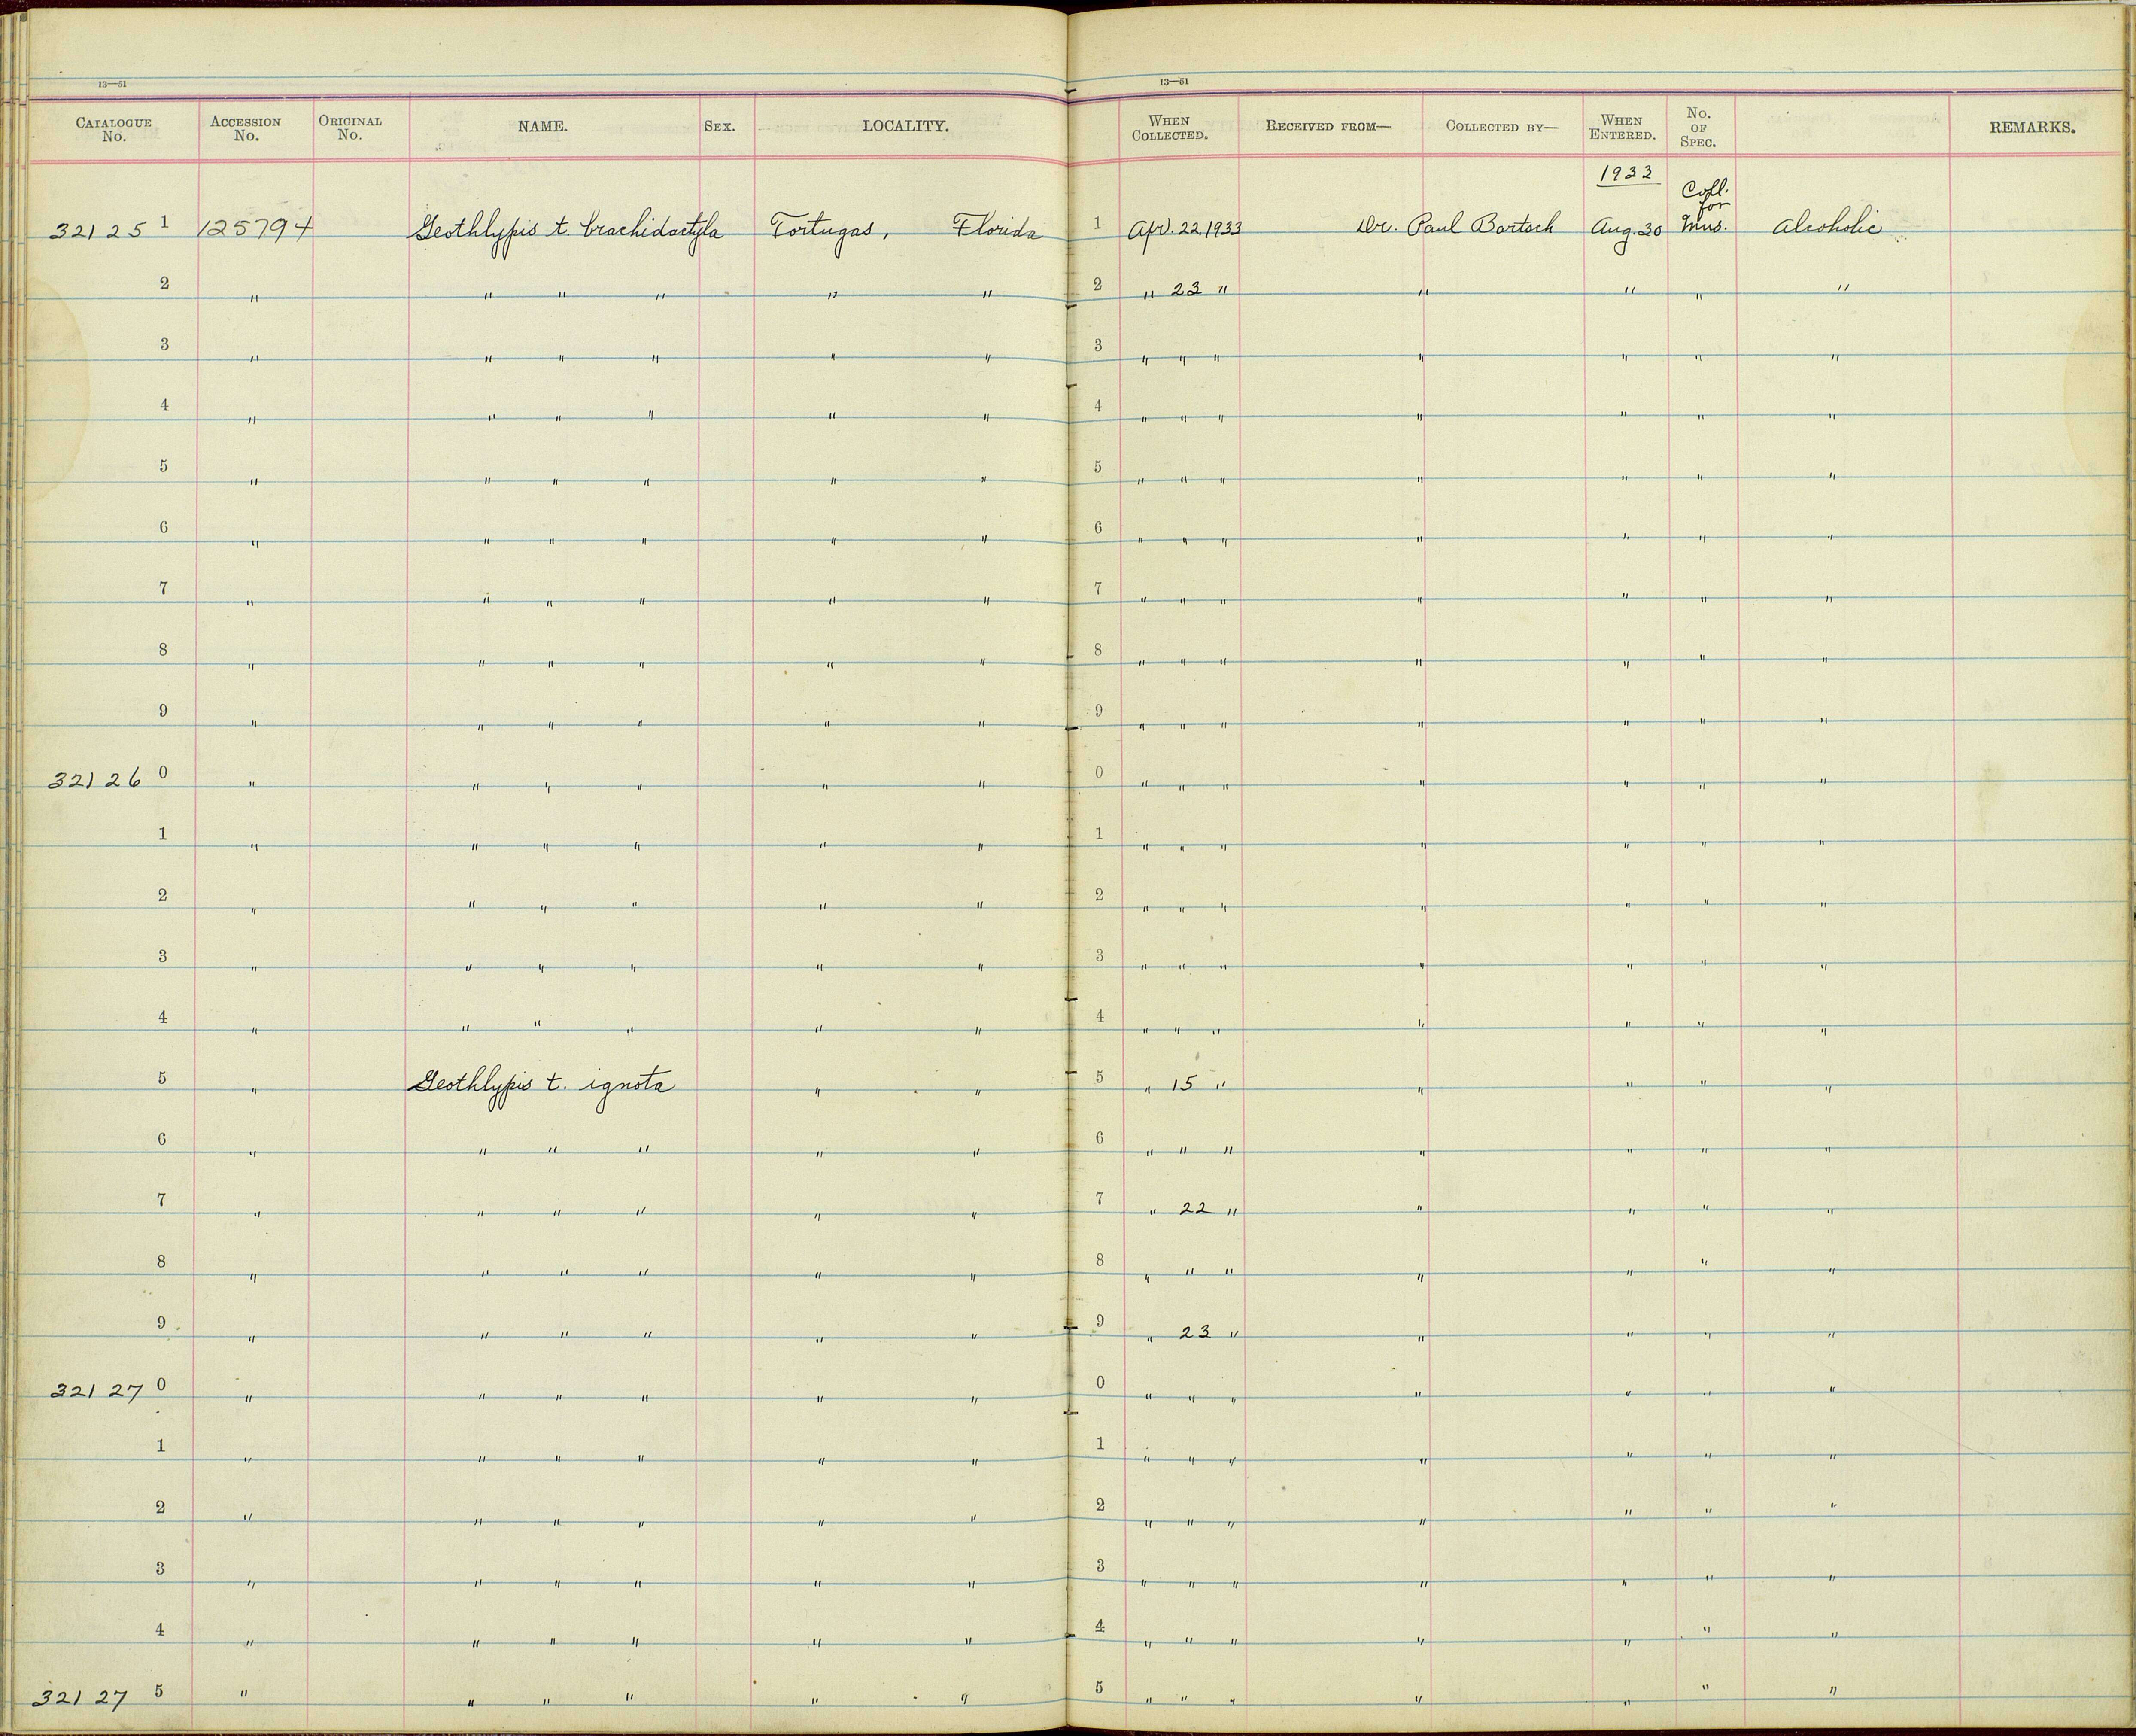 13—51 13—51
CATALOGUE No. ACCESSION No. ORIGINAL No. NAME. SEX. LOCALITY. WHEN COLLECTED. RECEIVED FROM— COLLECTED BY— WHEN ENTERED. No. OF SPEC. REMARKS.
1933
32125 1 125794 Geothlypis t. brachidactyla Tortugas, Florida 1 Apr. 22, 1933 Dr. Paul Bartsch Aug. 30 Coll. for Mus. Alcoholic
2 " " " " " " 2 " 23 " " " " "
3 " " " " " " 3 " " " " " " "
4 " " " " " " 4 " " " " " " "
5 " " " " " " 5 " " " " " " "
6 " " " " " " 6 " " " " " " "
7 " " " " " " 7 " " " " " " "
8 " " " " " " 8 " " " " " " "
9 " " " " " " 9 " " " " " " "
32126 0 " " " " " " 0 " " " " " " "
1 " " " " " " 1 " " " " " " "
2 " " " " " " 2 " " " " " " "
3 " " " " " " 3 " " " " " " "
4 " " " " " " 4 " " " " " " "
5 " Geothlypis t. ignota " " 5 " 15 " " " " "
6 " " " " " " 6 " " " " " " "
7 " " " " " " 7 " 22 " " " " "
8 " " " " " " 8 " " " " " " "
9 " " " " " " 9 " 23 " " " " "
32127 0 " " " " " " 0 " " " " " " "
1 " " " " " " 1 " " " " " " "
2 " " " " " " 2 " " " " " " "
3 " " " " " " 3 " " " " " " "
4 " " " " " " 4 " " " " " " "
32127 5 " " " " " " 5 " " " " " " "